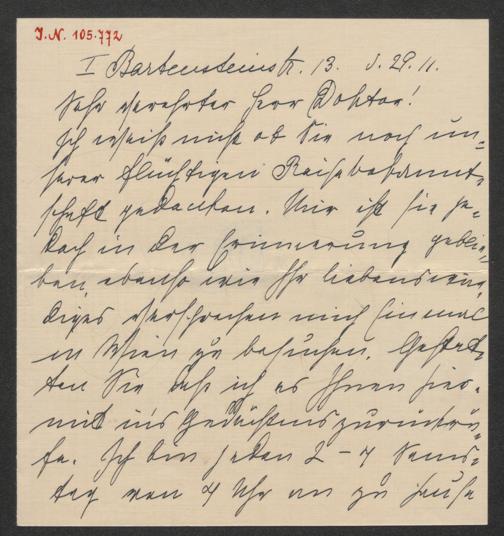 I. N. 105.772
I Bartensteinstr. 13. d. 29. 11.
Sehr verehrter Herr Doktor!
Ich weiß nicht ob Sie noch un=
serer flüchtigen Reisebekannt=
schaft gedenken. Mir ist sie je=
doch in der Erinnerung geblie=
ben, ebenso wie Ihr liebenswür=
diges Versprechen mich einmal
in Wien zu besuchen. Gestat=
ten Sie daß ich es Ihnen hier=
mit in's Gedächtnis zurückru=
fe. Ich bin jeden 2 – 4 Sams=
tag von 4 Uhr an zu Hause